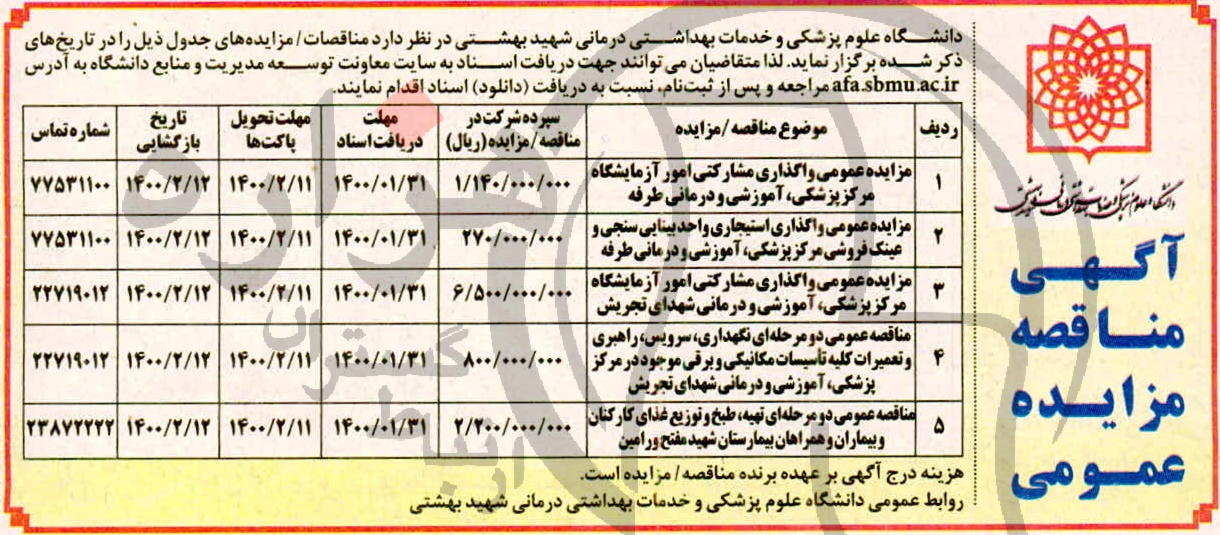 دانشگاه علوم پزشکی و خدمات بهداشتی درمانی شهید بهشتی
آگهی
مناقصه
مزایده
عمومی
دانشگاه علوم پزشکی و خدمات بهداشتی درمانی شهید بهشتی در نظر دارد مناقصات/مزایده‌های جدول ذیل را در تاریخ‌های
ذکر شده برگزار نماید. لذا متقاضیان می‌توانند جهت دریافت اسناد به سایت معاونت توسعه مدیریت و منابع دانشگاه به آدرس
afa.sbmu.ac.ir مراجعه و پس از ثبت‌نام، نسبت به دریافت (دانلود) اسناد اقدام نمایند.
ردیف موضوع مناقصه/مزایده سپرده شرکت در مناقصه/مزایده (ریال) مهلت دریافت اسناد مهلت تحویل پاکت‌ها تاریخ بازگشایی شماره تماس
۱ مزایده عمومی واگذاری مشارکتی امور آزمایشگاه
مرکز پزشکی، آموزشی و درمانی طرفه ۱/۱۴۰/۰۰۰/۰۰۰ ۱۴۰۰/۰۱/۳۱ ۱۴۰۰/۲/۱۱ ۱۴۰۰/۲/۱۲ ۷۷۵۳۱۱۰۰
۲ مزایده عمومی واگذاری استیجاری واحد بینایی سنجی و
عینک فروشی مرکز پزشکی، آموزشی و درمانی طرفه ۲۷۰/۰۰۰/۰۰۰ ۱۴۰۰/۰۱/۳۱ ۱۴۰۰/۲/۱۱ ۱۴۰۰/۲/۱۲ ۷۷۵۳۱۱۰۰
۳ مزایده عمومی واگذاری مشارکتی امور آزمایشگاه
مرکز پزشکی، آموزشی و درمانی شهدای تجریش ۶/۵۰۰/۰۰۰/۰۰۰ ۱۴۰۰/۰۱/۳۱ ۱۴۰۰/۲/۱۱ ۱۴۰۰/۲/۱۲ ۲۲۷۱۹۰۱۲
۴ مناقصه عمومی دو مرحله‌ای نگهداری، سرویس، راهبری
و تعمیرات کلیه تأسیسات مکانیکی و برقی موجود در مرکز
پزشکی، آموزشی و درمانی شهدای تجریش ۸۰۰/۰۰۰/۰۰۰ ۱۴۰۰/۰۱/۳۱ ۱۴۰۰/۲/۱۱ ۱۴۰۰/۲/۱۲ ۲۲۷۱۹۰۱۲
۵ مناقصه عمومی دو مرحله‌ای تهیه، طبخ و توزیع غذای کارکنان
و بیماران و همراهان بیمارستان شهید مفتح ورامین ۲/۲۰۰/۰۰۰/۰۰۰ ۱۴۰۰/۰۱/۳۱ ۱۴۰۰/۲/۱۱ ۱۴۰۰/۲/۱۲ ۲۳۸۷۲۲۲۲
هزینه درج آگهی بر عهده برنده مناقصه/مزایده است.
روابط عمومی دانشگاه علوم پزشکی و خدمات بهداشتی درمانی شهید بهشتی
هزاره
گستران
ارتباط